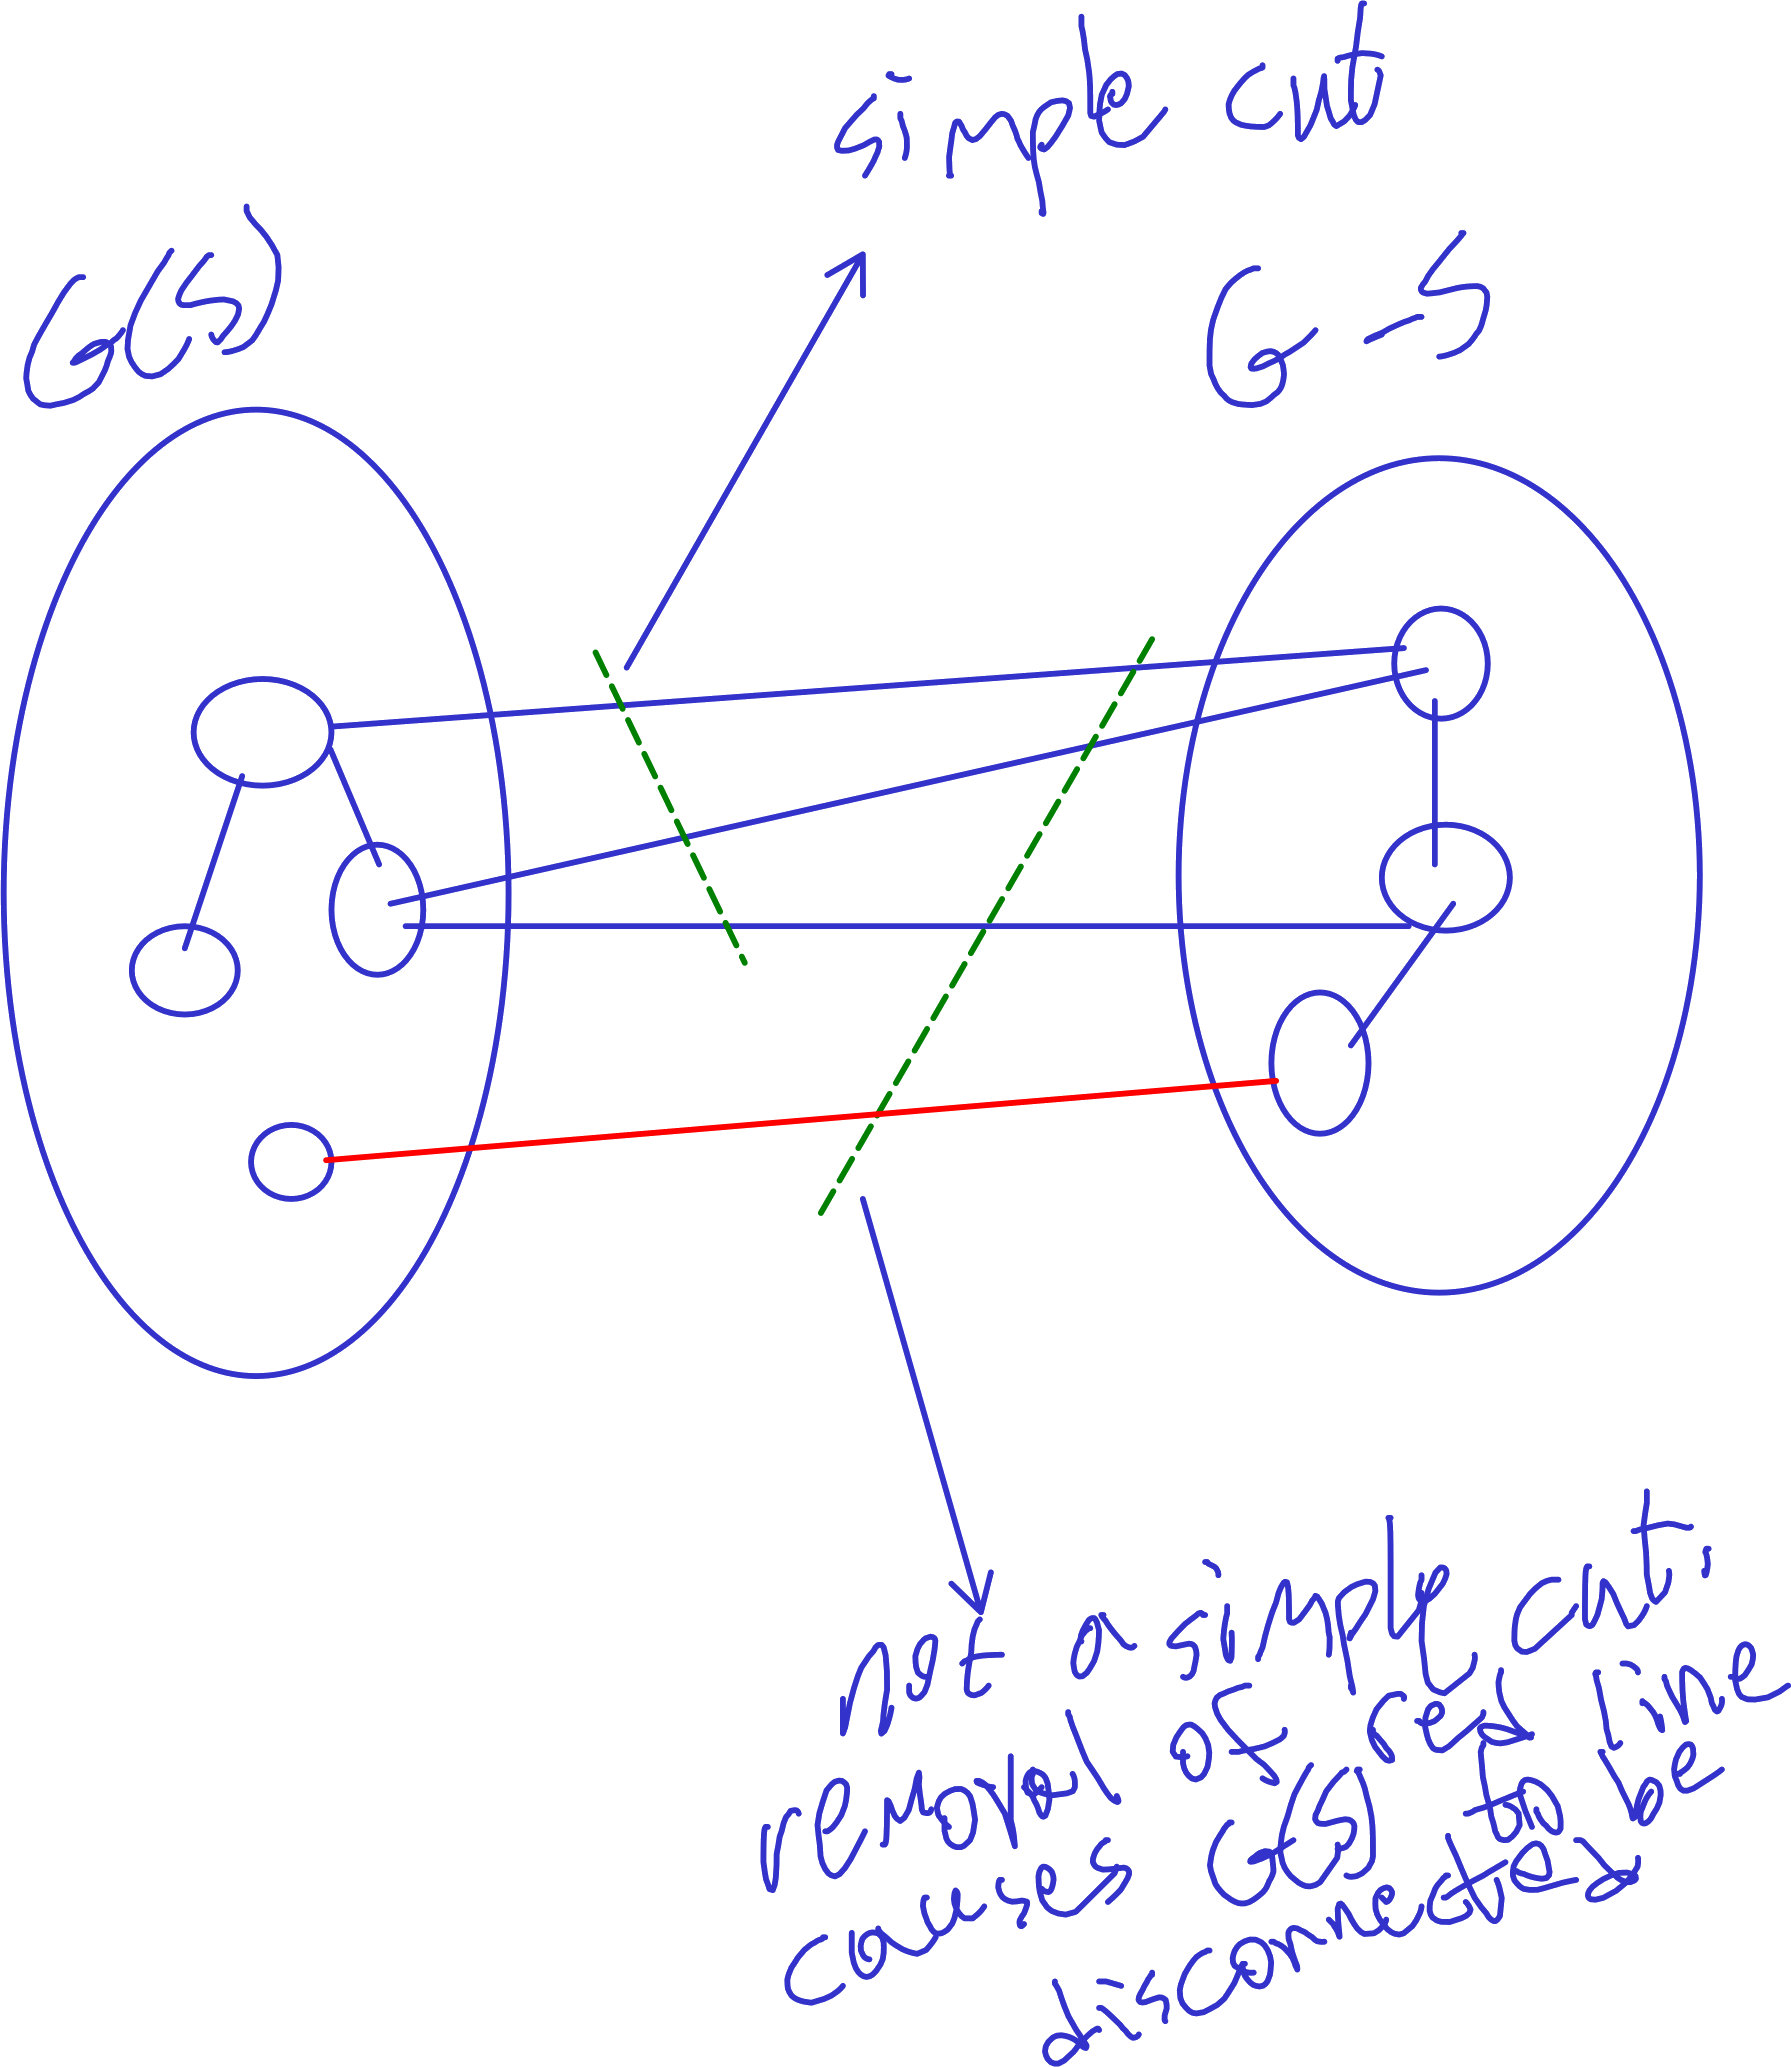 simple cut
G(S)
G - S
not a simple cut;
removal of red line
causes G(S) to be
disconnected